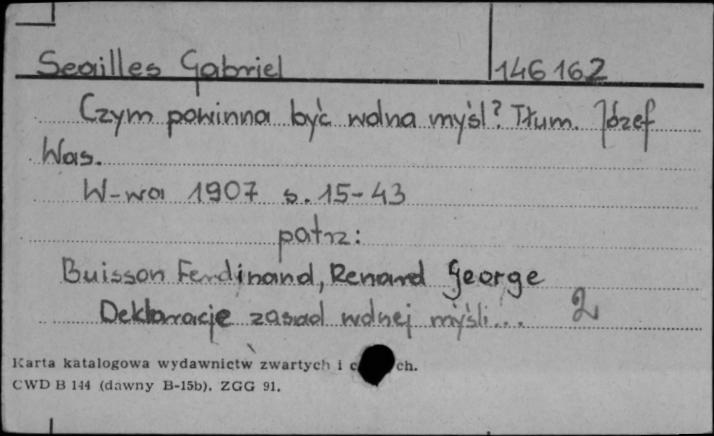 Seailles Gabriel 146162
Czym powinna być wolna myśl? Tłum. Józef
Was.
W-wa 1907 s. 15-43
patrz:
Buisson Ferdinand, Renard George
Deklaracje zasad wolnej myśli... 2
Karta katalogowa wydawnictw zwartych i
CWD B 144 (dawny B-15b). ZGG 91.